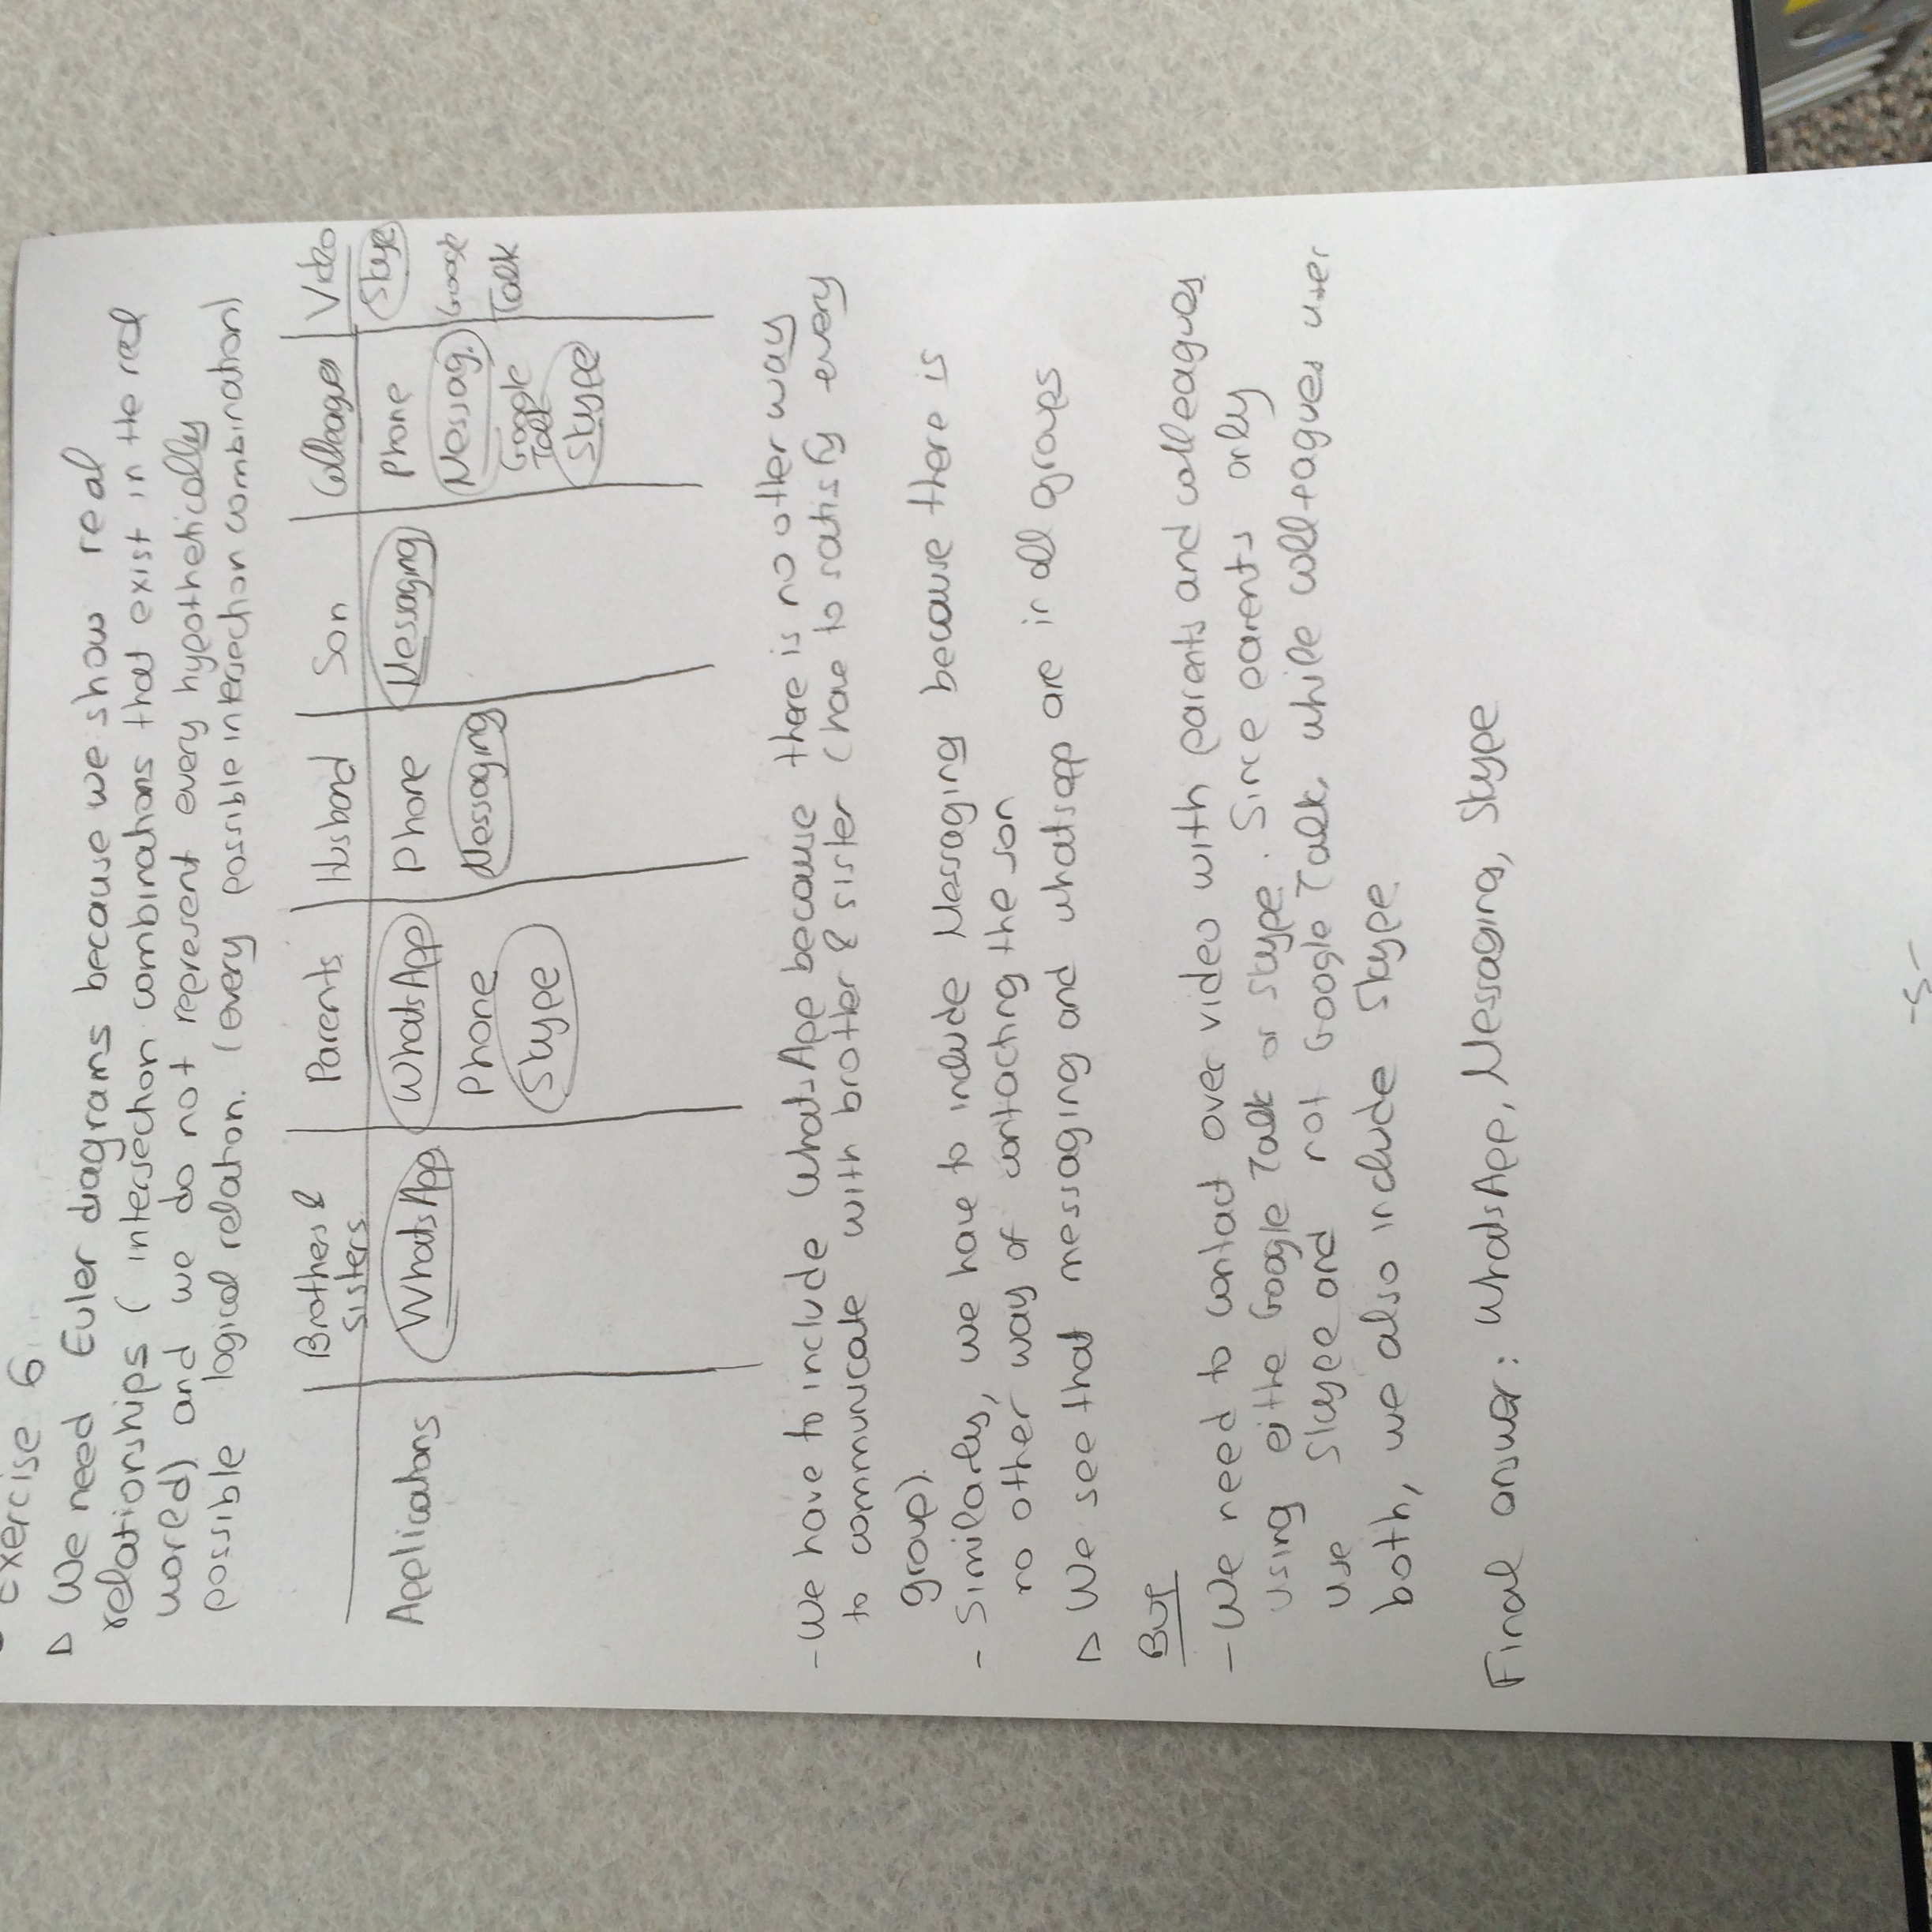 Exercise 6
▷ We need Euler diagrams because we show real
relationships ( intersection combinations that exist in the real
world) and we do not represent every hypothetically
possible logical relation. (every possible intersection combination)
Brothers & sisters Parents Husband Son Colleagues Video
Applications WhatsApp WhatsApp Phone Messaging Phone Skype
Phone Messaging Messag. Google
Skype Google Talk Talk
Skype
- We have to include WhatsApp because there is no other way
to communicate with brother & sister (have to satisfy every
group).
- Similarly, we have to include Messaging because there is
no other way of contacting the son
▷ We see that messaging and whatsapp are in all groups
BUT
- We need to contact over video with parents and colleagues
using eithe Google Talk or Skype. Since parents only
use Skype and not Google Talk, while colleagues user
both, we also include Skype
Final answer: WhatsApp, Messaging, Skype
-5-